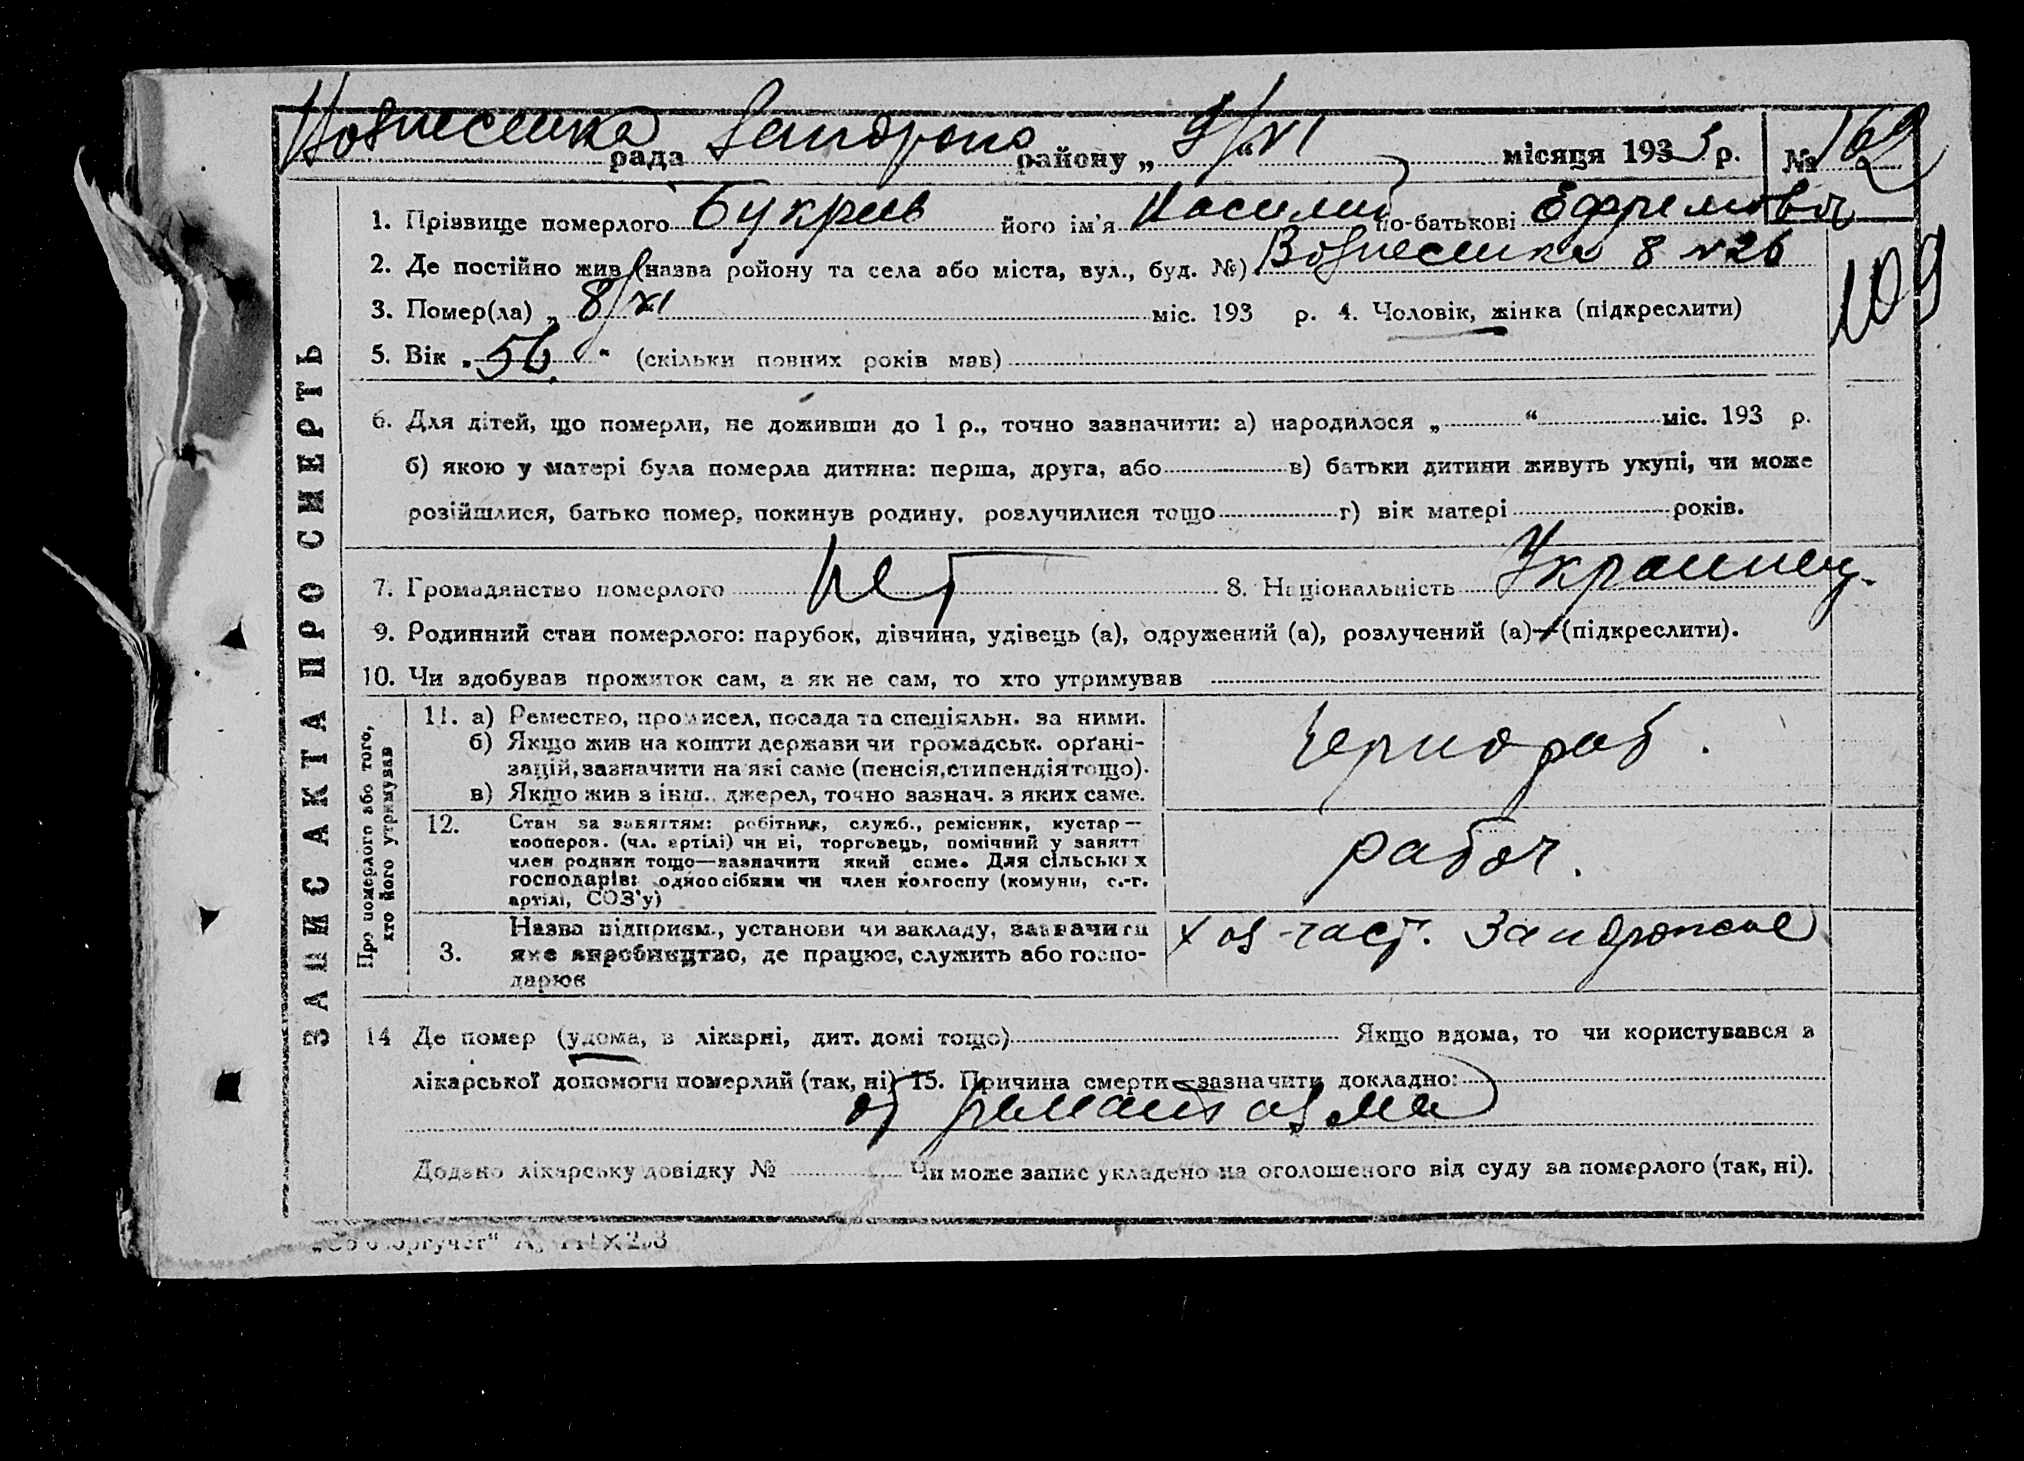 Вознесенка рада Запорож району „ 9/XI “ місяця 1933 р. № 162
1. Прізвище померлого Букрив його ім'я Василий по-батькові Ефримовь
2. Де постійно жив (назва ройону та села або міста, вул., буд. №) Вознесенка 8 №26
109
3. Помер(ла) „ 8/XI міс. 193 р. 4. Чоловік, жінка (підкреслити)
5. Вік „ 56 “ (скільки повних років мав)
6. Для дітей, що померли, не доживши до 1 р., точно зазначити: а) народилося „ “ міс. 193 р.
б) якою у матері була померла дитина: перша, друга, або в) батьки дитини живуть укупі, чи може
розійшлися, батько помер, покинув родину, розлучилися тощо г) вік матері років.
7. Громадянство померлого нет 8. Національність Украинец.
9. Родинний стан померлого: парубок, дівчина, удівець (а), одружений (а), розлучений (а)—(підкреслити).
10. Чи здобував прожиток сам, а як не сам, то хто утримував
ЗАПИС АКТА ПРО СМЕРТЬ
Про померлого або того,
хто його утримував
11. а) Ремество, промисел, посада та спеціяльн. за ними.
б) Якщо жив на кошти держави чи громадськ. орґані-
зацій, зазначити на які саме (пенсія, стипендія тощо).
в) Якщо жив з інш. джерел, точно зазнач. з яких саме.
Чернораб.
12. Стан за заняттям: робітник, служб., ремісник, кустар—
кооперов. (чл. артілі) чи ні, торговець, помічний у занятт
член родини тощо—зазначити який саме. Для сільських
господарів: одноосібник чи член колгоспу (комуни, с.-г.
артілі, СОЗ'у)
рабоч.
3. Назва підприєм., установи чи закладу, зазначити
яке виробництво, де працює, служить або госпо-
дарює
хоз-част. Запорожье
14 Де помер (удома, в лікарні, дит. домі тощо) Якщо вдома, то чи користувався з
лікарської допомоги померлий (так, ні) 15. Причина смерти—зазначити докладно:
от
Додано лікарську довідку № Чи може запис укладено на оголошеного від суду за померлого (так, ні).